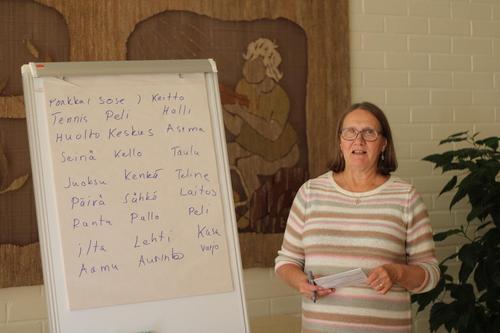 Porkkal sose ) Keitto
Tennis Peli Halli
Huolto Keskus Asema
Seinä Kello Taulu
Juoksu Kenkä Teline
Päivä Sähkö Laitos
Ranta Pallo Peli
ilta Lehti Kasa
Aamu Aurinko Varjo